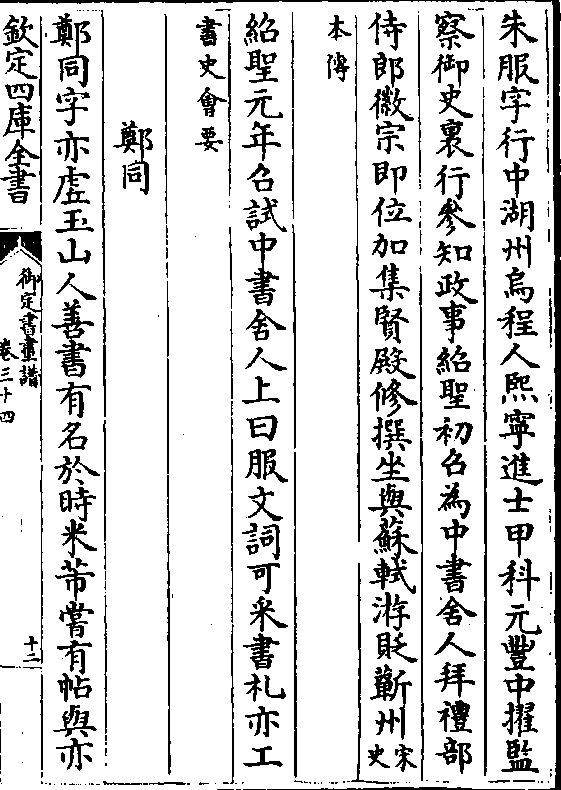 朱服字行中湖州烏程人熙寧進士甲科元豐中擢監
察御史裏行參知政事紹聖初召為中書舍人拜禮部
侍郎徽宗即位加集賢殿修撰坐與蘇軾游貶蘄州宋史
本傳
紹聖元年召試中書舍人上曰服文詞可采書札亦工
書史會要
鄭同
鄭同字亦虛玉山人善書有名於時米芾嘗有帖與亦
欽定四庫全書
御定書畫譜
卷三十四
十二